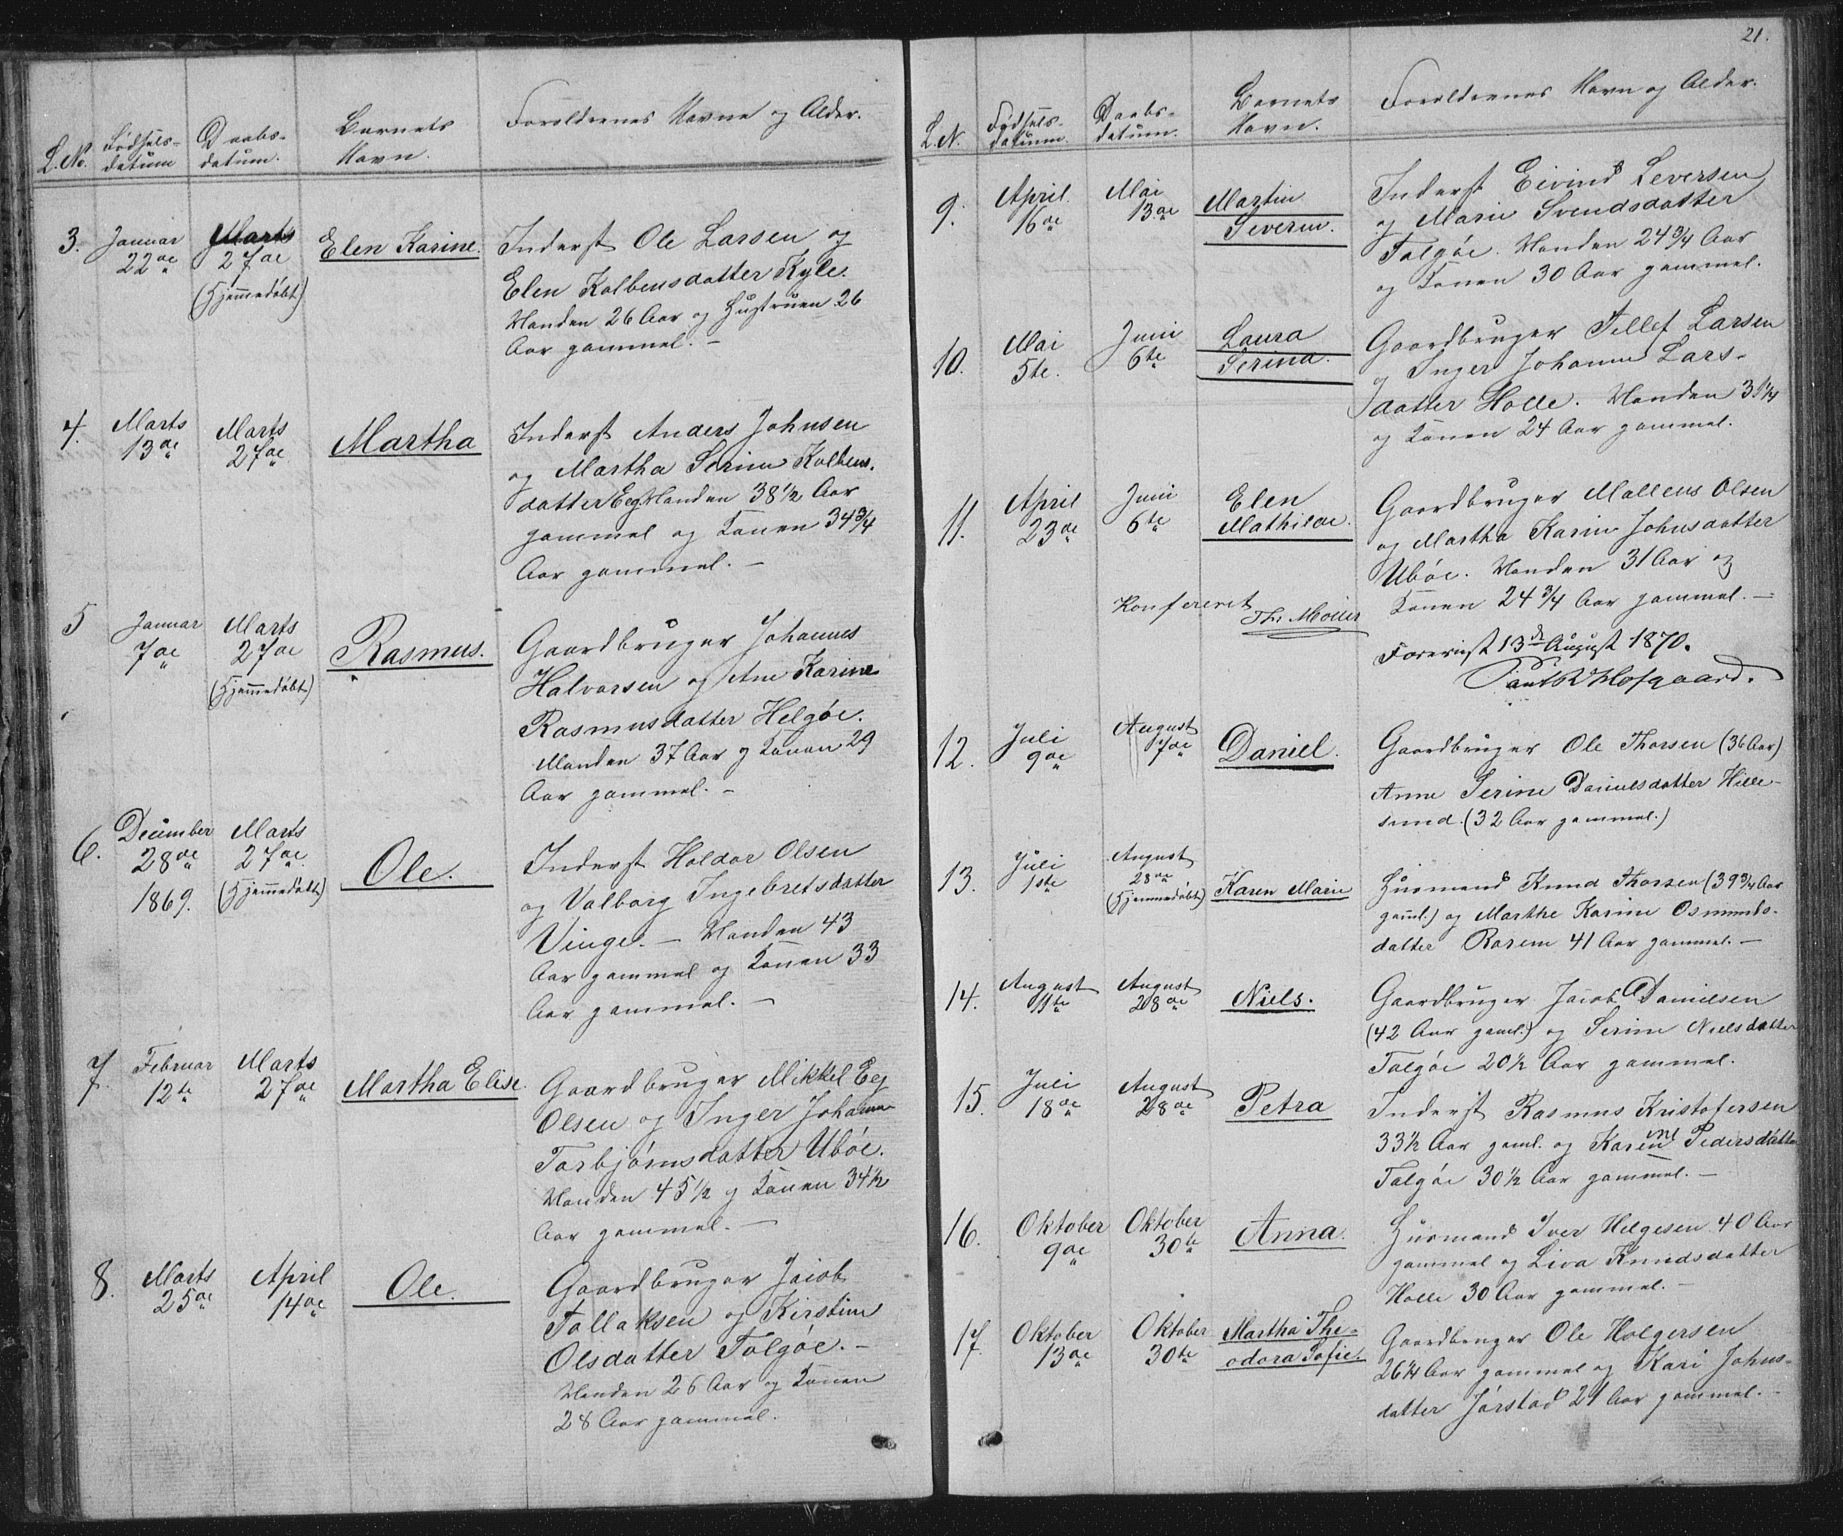 L.No. Fødsels-datum Daabs-datum. Barnets Navn. Forældrenes Navne og Alder.
3. Januar 22de Marts 27de (Hjemmedøbt) Elen Karine. Inderst Ole Larsen og
Elen Kolbensdatter Kyle.
Manden 26 Aar og Hustruen 26
Aar gammel. –
4. Marts 13de Marts 27de Martha Inderst Anders Johnsen
og Martha Serine Kolbens-
datter Eeg Manden 38 1/2 Aar
gammel og Konen 34 3/4
Aar gammel. –
5 Januar 7de Marts 27de (Hjemmedøbt) Rasmus. Gaardbruger Johannes
Halvorsen og Ane Karine
Rasmusdatter Helgøe.
Manden 37 Aar og Konen 29
Aar gammel. –
6. December 28de 1869. Marts 27de (Hjemmedøbt) Ole. Inderst Haldor Olsen
og Valborg Ingebretsdatter
Vinge. – Manden 43
Aar gammel og Konen 33
Aar gammel. –
7. Februar 12te Marts 27de Martha Elise. Gaardbruger Mikkel Eeg
Olsen og Inger Johanne
Torbjørnsdatter Ubøe.
Manden 45 1/2 og Konen 34 1/2
Aar gammel. –
8. Marts 25de April 14de Ole. Gaardbruger Jacob
Tollaksen og Kirstine
Olsdatter Talgøe. –
Manden 26 Aar og Konen
28 Aar gammel.
21.
L.N. Fødsels-datum. Daabs-datum. Barnets Navn. Forældrenes Navn og Alder.
9. April 16de Mai 13de Martin Severin. Inderst Eivind Leversen
og Marie Svendsdatter
Talgøe. Manden 24 3/4 Aar
og Konen 30 Aar gammel.
10. Mai 5te. Juni 6te Laura Serina. Gaardbruger Tellef Larsen
og Inger Johanne Lars-
datter Holle. Manden 31 1/4
og Konen 24 Aar gammel.
11. April 23de Juni 6te Elen Mathilde. Gaardbruger Malleus Olsen
og Martha Karine Johnsdatter
Ubøe. Manden 31 Aar og
Konen 24 3/4 Aar gammel. –
Konfereret Th. Møller
Foreviist 13de August 1870.
Hofgaard.
12. Juli 9de August 7de Daniel. Gaardbruger Ole Thorsen (36 Aar)
Anne Serine Danielsdatter Hille-
sund. (32 Aar gammel.)
13. Juli 1ste August 28de (Hjemmedøbt) Karen Marie Huusmand Knud Thorsen (39 3/4 Aar
gaml.) og Marthe Karine Osmunds-
datter Rosem 41 Aar gammel. –
14. August 11te August 28de Niels. Gaardbruger Jacob Danielsen
(42 Aar gaml.) og Serine Nielsdatter
Talgøe 20 1/2 Aar gammel.
15. Juli 18de August 28de Petra Inderst Rasmus Kristofersen
33 1/2 Aar gaml. og Karen ine Pedersdatter
Talgøe 30 1/2 Aar gammel. –
16. Oktober 9de Oktober 30te Anna. Huusmand Iver Helgesen 40 Aar
gammel og Liva Knudsdatter
Holle 30 Aar gammel. –
17. Oktober 13de Oktober 30te Martha The-odora Sofie. Gaardbruger Ole Holgersen
26 1/4 Aar gammel og Kari Johns-
datter Jørstad 21 Aar gammel. –